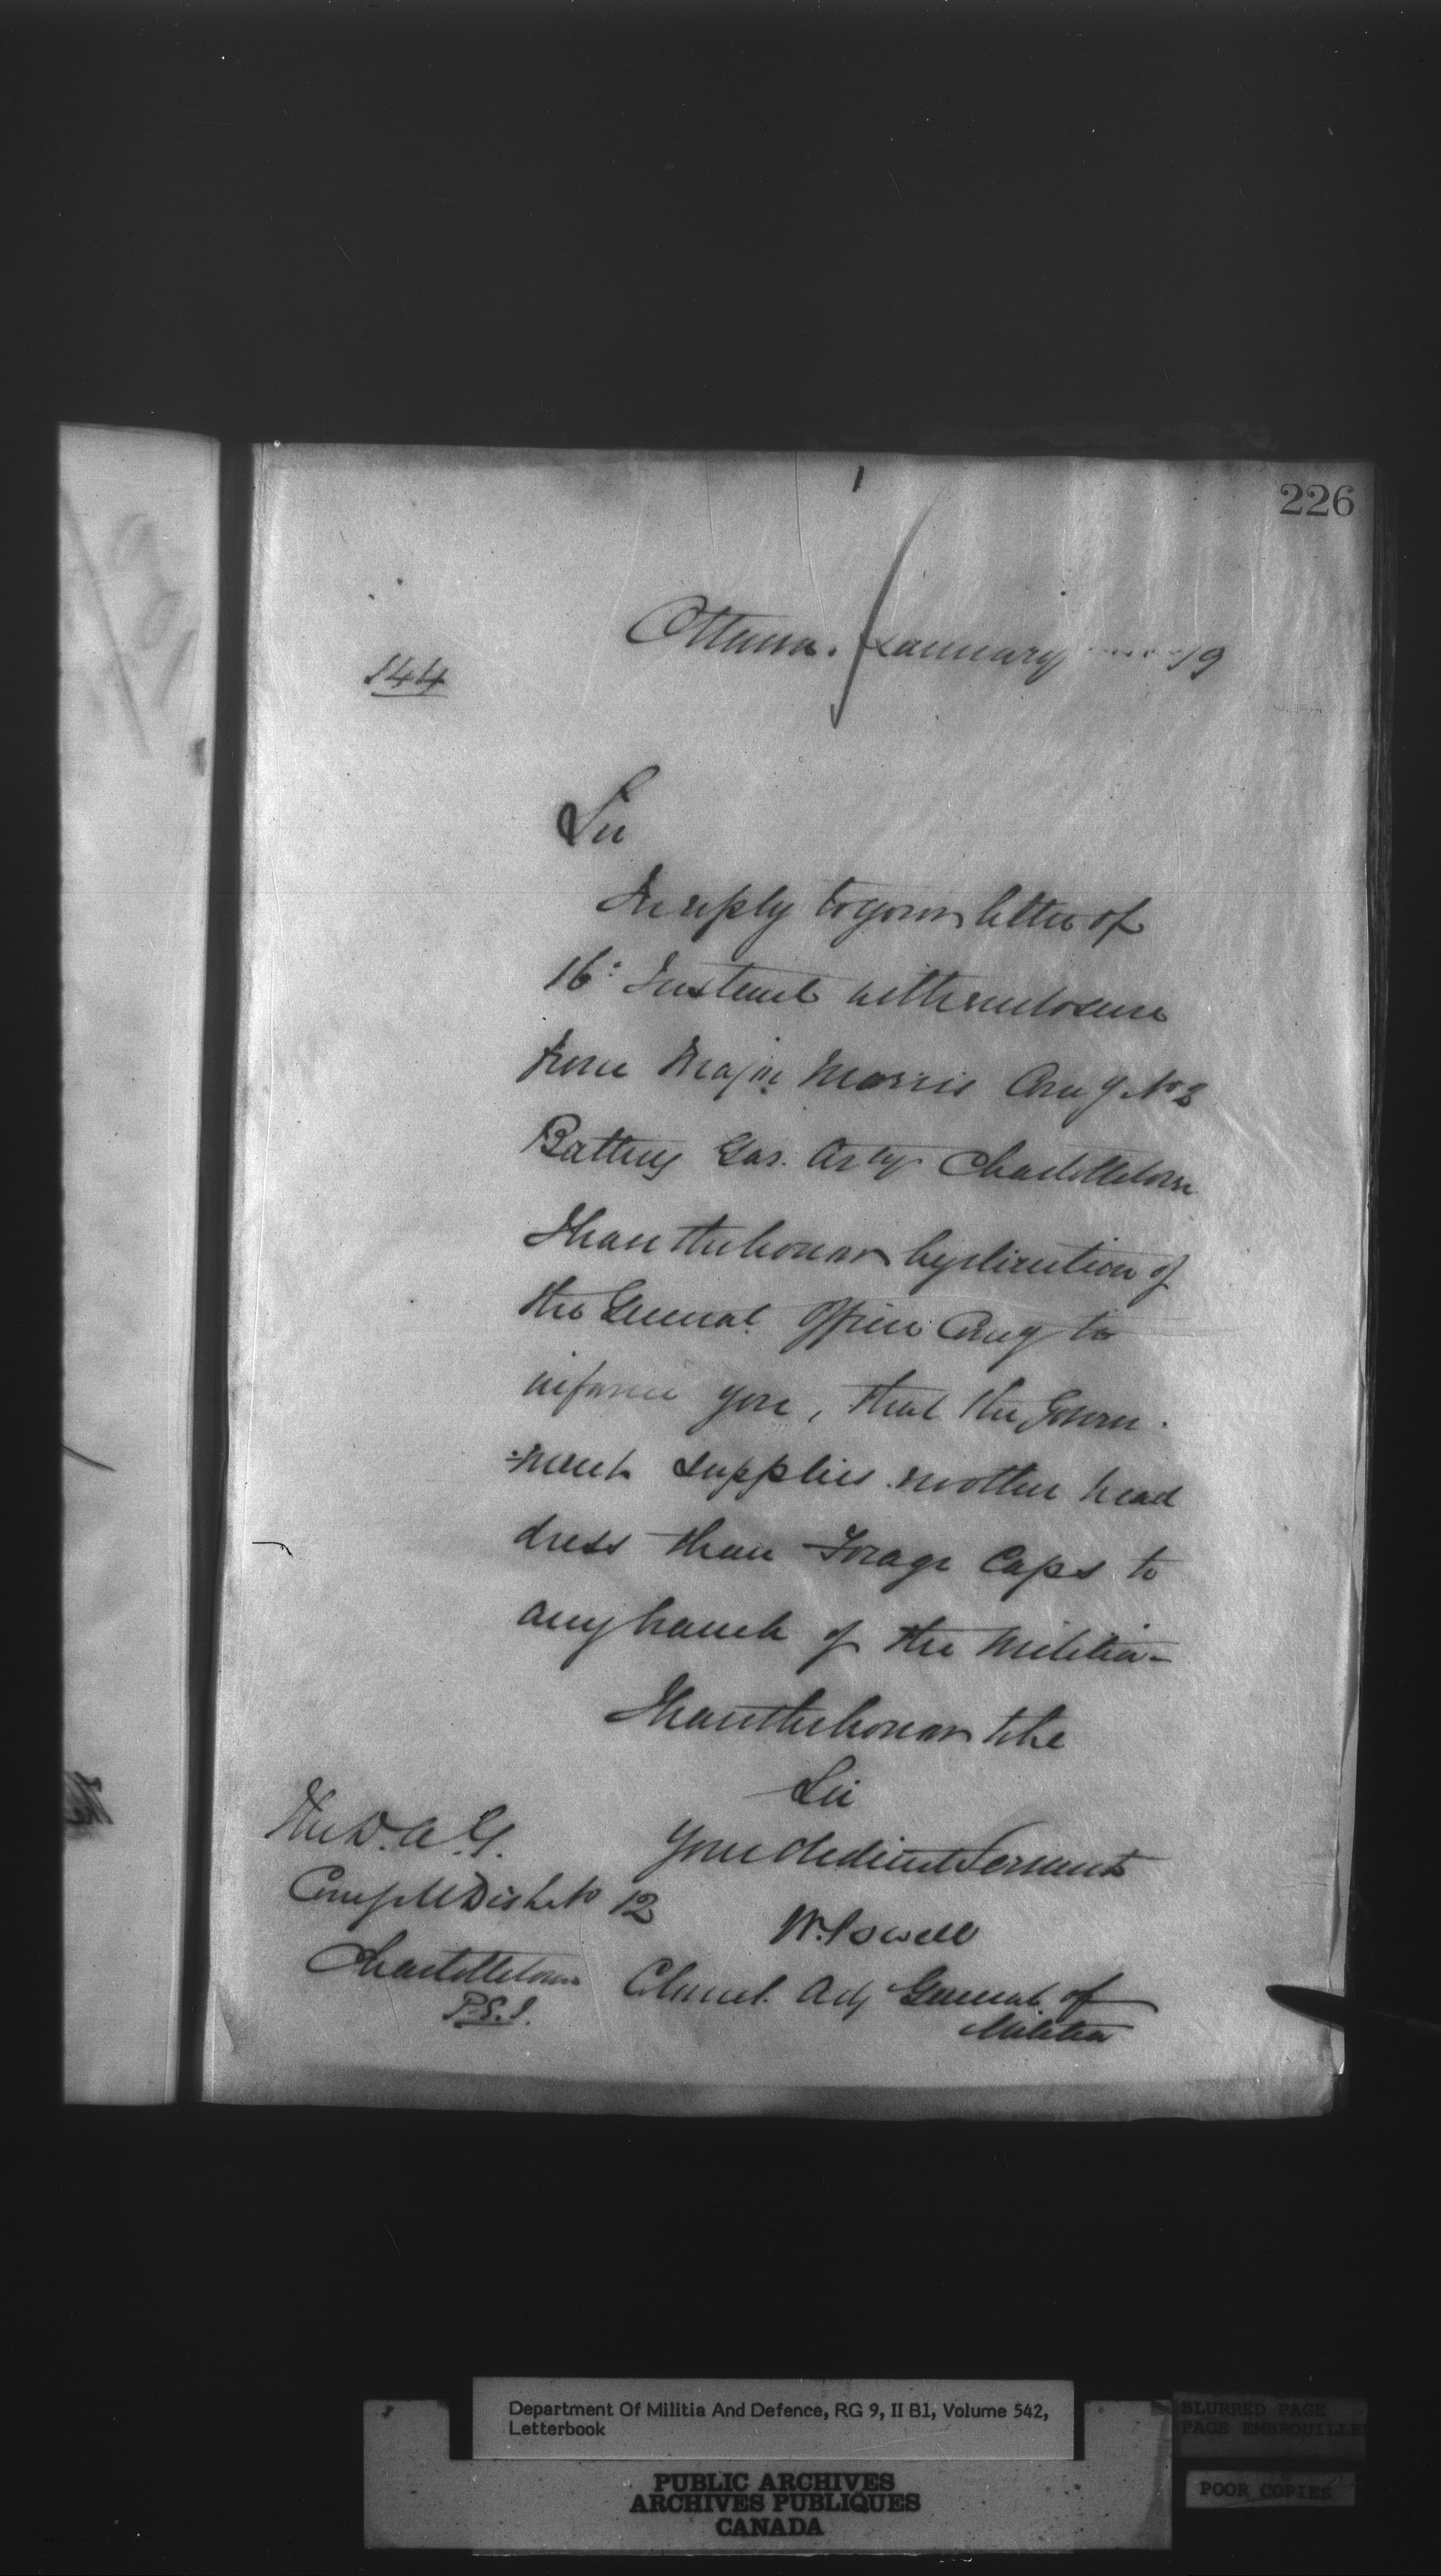 226
Ottawa. January 79
144
Sir
In reply to your letter of
16: Instant with enclosure
from Major Morris Comg No 2
Battery Gar. Arty Charlottetown
I have the honor by direction of
the General Officer Comg to
inform you, that the Govern-
:ment supplies no other head
dress than Forage Caps to
any branch of the Militia-
I have the honor to be
Sir
Your obedient Servant
W. Powell
Colonel. Adj General of
Militia
The D. A. G.
Comg M Dist No 12
Charlottetown
P.E.I.
Department Of Militia And Defence, RG 9, II B1, Volume 542,
Letterbook
PUBLIC ARCHIVES
ARCHIVES PUBLIQUES
CANADA
BLURRED PAGE
PAGE EMBROUILLEE
POOR COPIES